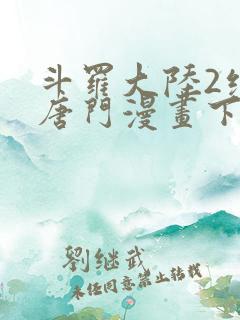 斗羅大陸2
唐門漫畫下
劉继武
未经同意禁止转载